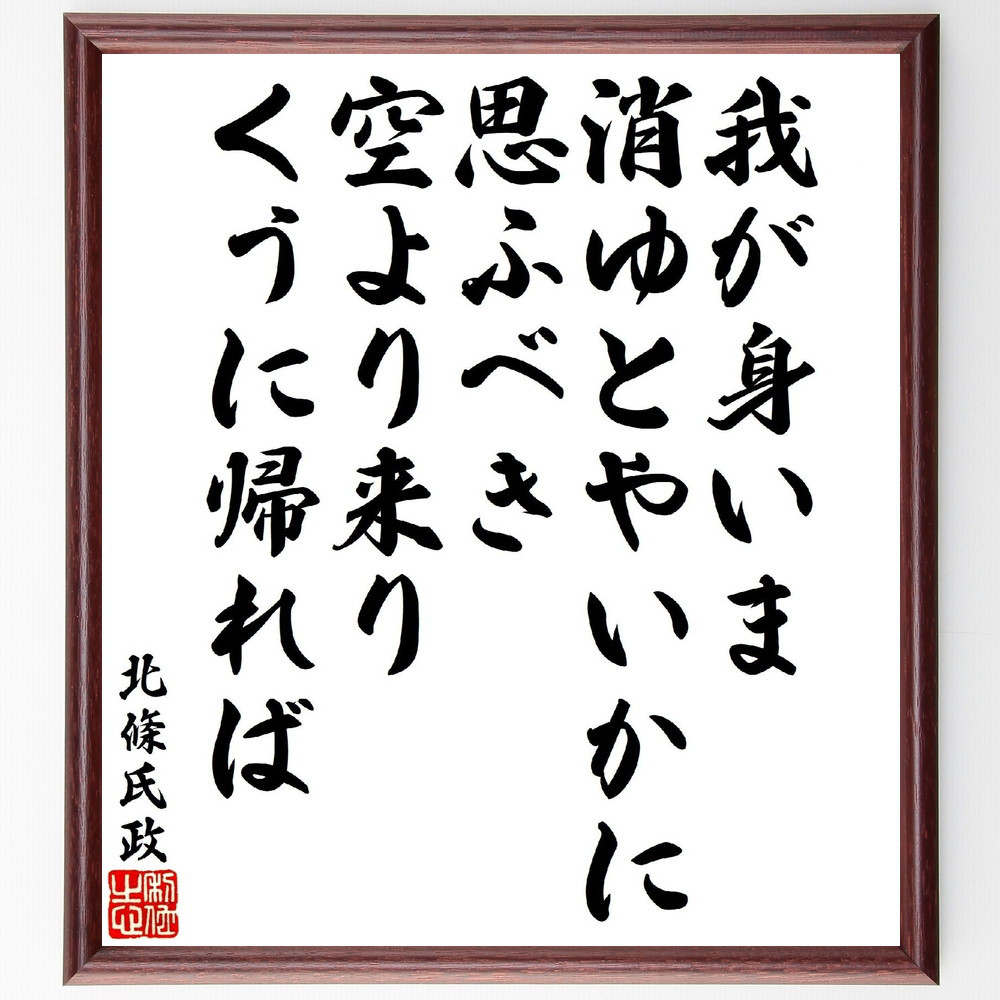 我が身いま
消ゆとやいかに
思ふべき
空より来り
くうに帰れば
北條氏政